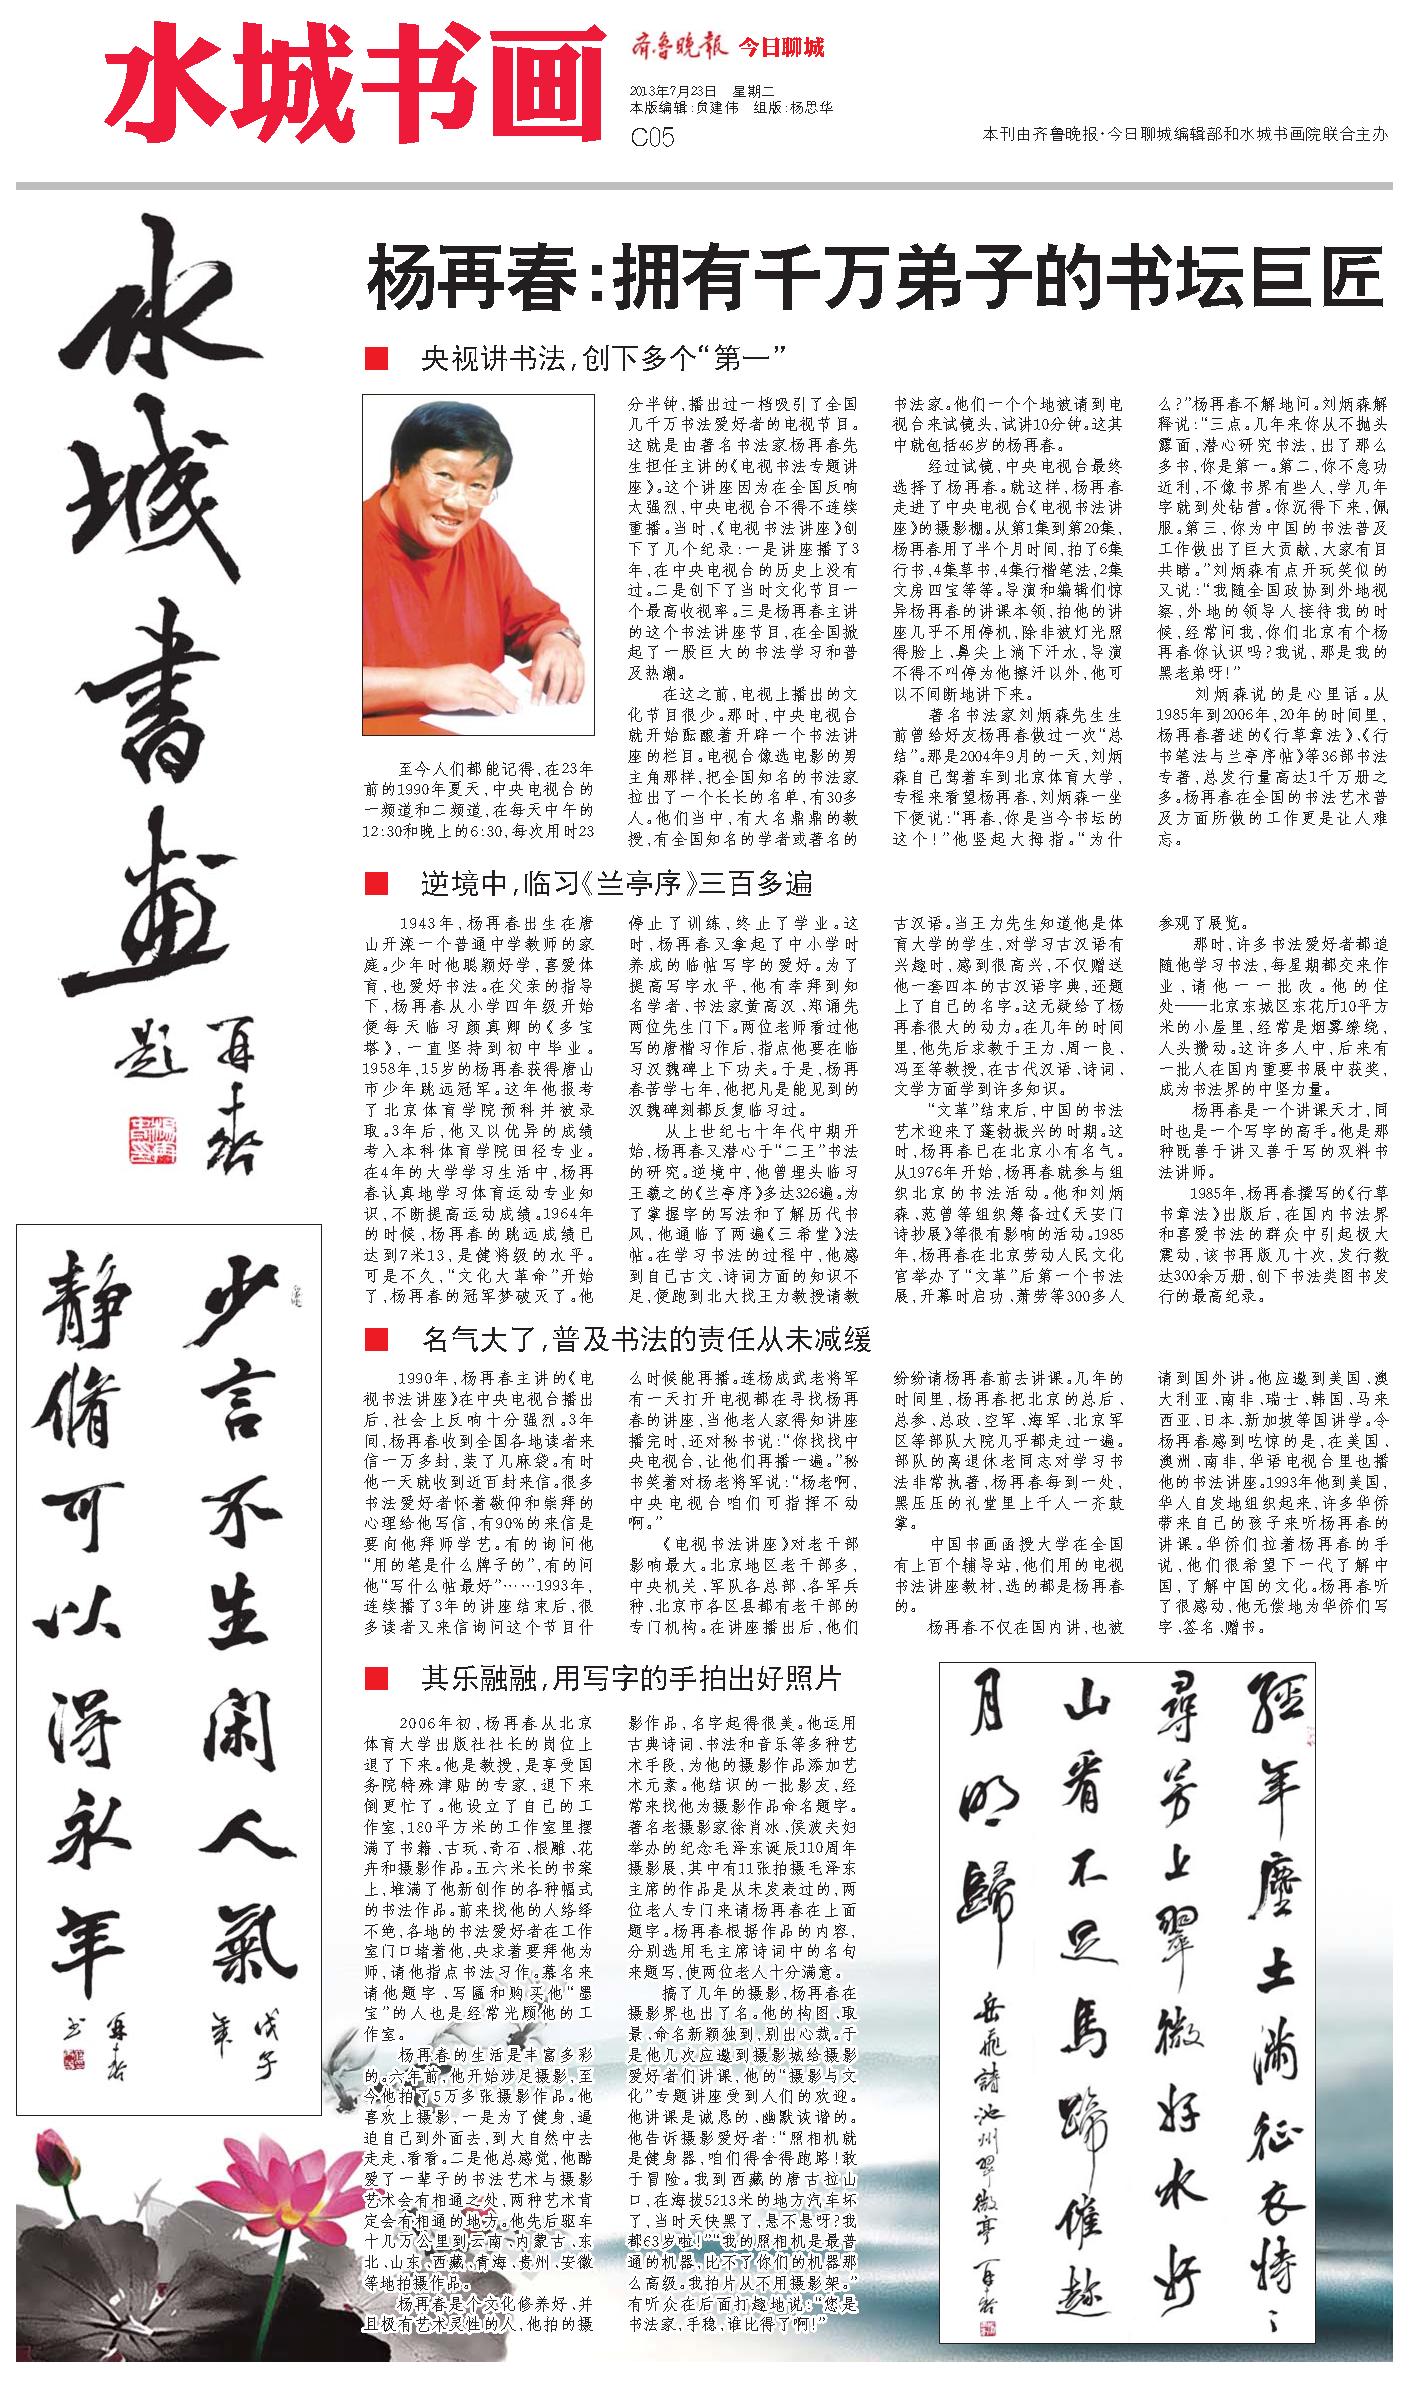 水城书画
齐鲁晚报 今日聊城
2013年7月23日 星期二
本版编辑:贠建伟 组版:杨思华
C05
本刊由齐鲁晚报·今日聊城编辑部和水城书画院联合主办
水城書画
再春
题
杨再春:拥有千万弟子的书坛巨匠
央视讲书法,创下多个“第一”
至今人们都能记得,在23年
前的1990年夏天,中央电视台的
一频道和二频道,在每天中午的
12:30和晚上的6:30,每次用时23
分半钟,播出过一档吸引了全国
几千万书法爱好者的电视节目。
这就是由著名书法家杨再春先
生担任主讲的《电视书法专题讲
座》。这个讲座因为在全国反响
太强烈,中央电视台不得不连续
重播。当时,《电视书法讲座》创
下了几个纪录:一是讲座播了3
年,在中央电视台的历史上没有
过。二是创下了当时文化节目一
个最高收视率。三是杨再春主讲
的这个书法讲座节目,在全国掀
起了一股巨大的书法学习和普
及热潮。
在这之前,电视上播出的文
化节目很少。那时,中央电视台
就开始酝酿着开辟一个书法讲
座的栏目。电视台像选电影的男
主角那样,把全国知名的书法家
拉出了一个长长的名单,有30多
人。他们当中,有大名鼎鼎的教
授,有全国知名的学者或著名的
书法家。他们一个个地被请到电
视台来试镜头,试讲10分钟。这其
中就包括46岁的杨再春。
经过试镜,中央电视台最终
选择了杨再春。就这样,杨再春
走进了中央电视台《电视书法讲
座》的摄影棚。从第1集到第20集,
杨再春用了半个月时间,拍了6集
行书,4集草书,4集行楷笔法,2集
文房四宝等等。导演和编辑们惊
异杨再春的讲课本领,拍他的讲
座几乎不用停机,除非被灯光照
得脸上、鼻尖上淌下汗水,导演
不得不叫停为他擦汗以外,他可
以不间断地讲下来。
著名书法家刘炳森先生生
前曾给好友杨再春做过一次“总
结”。那是2004年9月的一天,刘炳
森自己驾着车到北京体育大学,
专程来看望杨再春,刘炳森一坐
下便说:“再春,你是当今书坛的
这个!”他竖起大拇指。“为什
么?”杨再春不解地问。刘炳森解
释说:“三点。几年来你从不抛头
露面,潜心研究书法,出了那么
多书,你是第一。第二,你不急功
近利,不像书界有些人,学几年
字就到处钻营。你沉得下来,佩
服。第三,你为中国的书法普及
工作做出了巨大贡献,大家有目
共睹。”刘炳森有点开玩笑似的
又说:“我随全国政协到外地视
察,外地的领导人接待我的时
候,经常问我,你们北京有个杨
再春你认识吗?我说,那是我的
黑老弟呀!”
刘炳森说的是心里话。从
1985年到2006年,20年的时间里,
杨再春著述的《行草章法》、《行
书笔法与兰亭序帖》等36部书法
专著,总发行量高达1千万册之
多。杨再春在全国的书法艺术普
及方面所做的工作更是让人难
忘。
逆境中,临习《兰亭序》三百多遍
1943年,杨再春出生在唐
山开滦一个普通中学教师的家
庭。少年时他聪颖好学,喜爱体
育,也爱好书法。在父亲的指导
下,杨再春从小学四年级开始
便每天临习颜真卿的《多宝
塔》,一直坚持到初中毕业。
1958年,15岁的杨再春获得唐山
市少年跳远冠军。这年他报考
了北京体育学院预科并被录
取。3年后,他又以优异的成绩
考入本科体育学院田径专业。
在4年的大学学习生活中,杨再
春认真地学习体育运动专业知
识,不断提高运动成绩。1964年
的时候,杨再春的跳远成绩已
达到7米13,是健将级的水平。
可是不久,“文化大革命”开始
了,杨再春的冠军梦破灭了。他
停止了训练,终止了学业。这
时,杨再春又拿起了中小学时
养成的临帖写字的爱好。为了
提高写字水平,他有幸拜到知
名学者、书法家黄高汉、郑诵先
两位先生门下。两位老师看过他
写的唐楷习作后,指点他要在临
习汉魏碑上下功夫。于是,杨再
春苦学七年,他把凡是能见到的
汉魏碑刻都反复临习过。
从上世纪七十年代中期开
始,杨再春又潜心于“二王”书法
的研究。逆境中,他曾埋头临习
王羲之的《兰亭序》多达326遍。为
了掌握字的写法和了解历代书
风,他通临了两遍《三希堂》法
帖。在学习书法的过程中,他感
到自己古文、诗词方面的知识不
足,便跑到北大找王力教授请教
古汉语。当王力先生知道他是体
育大学的学生,对学习古汉语有
兴趣时,感到很高兴,不仅赠送
他一套四本的古汉语字典,还题
上了自己的名字。这无疑给了杨
再春很大的动力。在几年的时间
里,他先后求教于王力、周一良、
冯至等教授,在古代汉语、诗词、
文学方面学到许多知识。
“文革”结束后,中国的书法
艺术迎来了蓬勃振兴的时期。这
时,杨再春已在北京小有名气。
从1976年开始,杨再春就参与组
织北京的书法活动。他和刘炳
森、范曾等组织筹备过《天安门
诗抄展》等很有影响的活动。1985
年,杨再春在北京劳动人民文化
宫举办了“文革”后第一个书法
展,开幕时启功、萧劳等300多人
参观了展览。
那时,许多书法爱好者都追
随他学习书法,每星期都交来作
业,请他一一批改。他的住
处——北京东城区东花厅10平方
米的小屋里,经常是烟雾缭绕,
人头攒动。这许多人中,后来有
一批人在国内重要书展中获奖,
成为书法界的中坚力量。
杨再春是一个讲课天才,同
时也是一个写字的高手。他是那
种既善于讲又善于写的双料书
法讲师。
1985年,杨再春撰写的《行草
书章法》出版后,在国内书法界
和喜爱书法的群众中引起极大
震动,该书再版几十次,发行数
达300余万册,创下书法类图书发
行的最高纪录。
名气大了,普及书法的责任从未减缓
1990年,杨再春主讲的《电
视书法讲座》在中央电视台播出
后,社会上反响十分强烈。3年
间,杨再春收到全国各地读者来
信一万多封,装了几麻袋。有时
他一天就收到近百封来信。很多
书法爱好者怀着敬仰和崇拜的
心理给他写信,有90%的来信是
要向他拜师学艺。有的询问他
“用的笔是什么牌子的”,有的问
他“写什么帖最好”……1993年,
连续播了3年的讲座结束后,很
多读者又来信询问这个节目什
么时候能再播。连杨成武老将军
有一天打开电视都在寻找杨再
春的讲座,当他老人家得知讲座
播完时,还对秘书说:“你找找中
央电视台,让他们再播一遍。”秘
书笑着对杨老将军说:“杨老啊,
中央电视台咱们可指挥不动
啊。”
《电视书法讲座》对老干部
影响最大。北京地区老干部多,
中央机关、军队各总部、各军兵
种、北京市各区县都有老干部的
专门机构。在讲座播出后,他们
纷纷请杨再春前去讲课。几年的
时间里,杨再春把北京的总后、
总参、总政、空军、海军、北京军
区等部队大院几乎都走过一遍。
部队的离退休老同志对学习书
法非常执著,杨再春每到一处,
黑压压的礼堂里上千人一齐鼓
掌。
中国书画函授大学在全国
有上百个辅导站,他们用的电视
书法讲座教材,选的都是杨再春
的。
杨再春不仅在国内讲,也被
请到国外讲。他应邀到美国、澳
大利亚、南非、瑞士、韩国、马来
西亚、日本、新加坡等国讲学。令
杨再春感到吃惊的是,在美国、
澳洲、南非,华语电视台里也播
他的书法讲座。1993年他到美国,
华人自发地组织起来,许多华侨
带来自己的孩子来听杨再春的
讲课。华侨们拉着杨再春的手
说,他们很希望下一代了解中
国,了解中国的文化。杨再春听
了很感动,他无偿地为华侨们写
字、签名、赠书。
其乐融融,用写字的手拍出好照片
2006年初,杨再春从北京
体育大学出版社社长的岗位上
退了下来。他是教授,是享受国
务院特殊津贴的专家,退下来
倒更忙了。他设立了自己的工
作室,180平方米的工作室里摆
满了书籍、古玩、奇石、根雕、花
卉和摄影作品。五六米长的书案
上,堆满了他新创作的各种幅式
的书法作品。前来找他的人络绎
不绝,各地的书法爱好者在工作
室门口堵着他,央求着要拜他为
师,请他指点书法习作。慕名来
请他题字、写匾和购买他“墨
宝”的人也是经常光顾他的工
作室。
杨再春的生活是丰富多彩
的。六年前,他开始涉足摄影,至
今他拍了5万多张摄影作品。他
喜欢上摄影,一是为了健身,逼
迫自己到外面去,到大自然中去
走走、看看。二是他总感觉,他酷
爱了一辈子的书法艺术与摄影
艺术会有相通之处,两种艺术肯
定会有相通的地方。他先后驱车
十几万公里到云南、内蒙古、东
北、山东、西藏、青海、贵州、安徽
等地拍摄作品。
杨再春是个文化修养好、并
且极有艺术灵性的人,他拍的摄
影作品,名字起得很美。他运用
古典诗词、书法和音乐等多种艺
术手段,为他的摄影作品添加艺
术元素。他结识的一批影友,经
常来找他为摄影作品命名题字。
著名老摄影家徐肖冰、侯波夫妇
举办的纪念毛泽东诞辰110周年
摄影展,其中有11张拍摄毛泽东
主席的作品是从未发表过的,两
位老人专门来请杨再春在上面
题字。杨再春根据作品的内容,
分别选用毛主席诗词中的名句
来题写,使两位老人十分满意。
搞了几年的摄影,杨再春在
摄影界也出了名。他的构图、取
景、命名新颖独到,别出心裁。于
是他几次应邀到摄影城给摄影
爱好者们讲课,他的“摄影与文
化”专题讲座受到人们的欢迎。
他讲课是诚恳的、幽默诙谐的。
他告诉摄影爱好者:“照相机就
是健身器,咱们得舍得跑路!敢
于冒险。我到西藏的唐古拉山
口,在海拔5213米的地方汽车坏
了,当时天快黑了,悬不悬呀?我
都63岁啦!”“我的照相机是最普
通的机器,比不了你们的机器那
么高级。我拍片从不用摄影架。”
有听众在后面打趣地说:“您是
书法家,手稳,谁比得了啊!”
少言不生闲人氣
静脩可以得永年
戊子
年
再春
书
經年塵土满征衣特二
尋芳上翠微好水好
山看不足馬蹄催趁
月明歸
岳飛詩池州翠微亭 再春